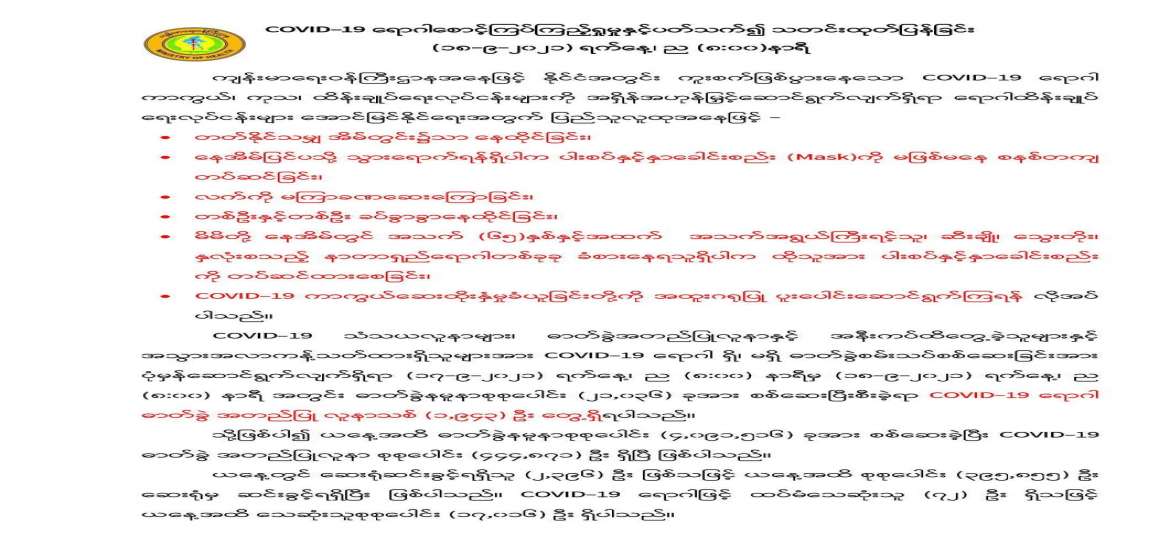 COVID–19 ရောဂါစောင့်ကြပ်ကြည့်ရှုမှုနှင့်ပတ်သက်၍ သတင်းထုတ်ပြန်ခြင်း
(၁၈–၉–၂၀၂၁) ရက်နေ့၊ ည (၈:၀၀)နာရီ
MINISTRY OF HEALTH
ကျန်းမာရေးဝန်ကြီးဌာနအနေဖြင့် နိုင်ငံအတွင်း ကူးစက်ဖြစ်ပွားနေသော COVID–19 ရောဂါ
ကာကွယ်၊ ကုသ၊ ထိန်းချုပ်ရေးလုပ်ငန်းများကို အရှိန်အဟုန်မြှင့်ဆောင်ရွက်လျက်ရှိရာ ရောဂါထိန်းချုပ်
ရေးလုပ်ငန်းများ အောင်မြင်နိုင်ရေးအတွက် ပြည်သူလူထုအနေဖြင့် –
• တတ်နိုင်သမျှ အိမ်တွင်း၌သာ နေထိုင်ခြင်း၊
• နေအိမ်ပြင်ပသို့ သွားရောက်ရန်ရှိပါက ပါးစပ်နှင့်နှာခေါင်းစည်း (Mask)ကို မဖြစ်မနေ စနစ်တကျ
တပ်ဆင်ခြင်း၊
• လက်ကို မကြာခဏဆေးကြောခြင်း၊
• တစ်ဦးနှင့်တစ်ဦး ခပ်ခွာခွာနေထိုင်ခြင်း၊
• မိမိတို့ နေအိမ်တွင် အသက် (၆၅)နှစ်နှင့်အထက် အသက်အရွယ်ကြီးရင့်သူ၊ ဆီးချို၊ သွေးတိုး၊
နှလုံးစသည့် နာတာရှည်ရောဂါတစ်ခုခု ခံစားနေရသူရှိပါက ထိုသူအား ပါးစပ်နှင့်နှာခေါင်းစည်း
ကို တပ်ဆင်ထားစေခြင်း၊
• COVID–19 ကာကွယ်ဆေးထိုးနှံမှုခံယူခြင်းတို့ကို အထူးဂရုပြု ပူးပေါင်းဆောင်ရွက်ကြရန် လိုအပ်
ပါသည်။
COVID–19 သံသယလူနာများ၊ ဓာတ်ခွဲအတည်ပြုလူနာနှင့် အနီးကပ်ထိတွေ့ခဲ့သူများနှင့်
အသွားအလာကန့်သတ်ထားရှိသူများအား COVID–19 ရောဂါ ရှိ၊ မရှိ ဓာတ်ခွဲစမ်းသပ်စစ်ဆေးခြင်းအား
ပုံမှန်ဆောင်ရွက်လျက်ရှိရာ (၁၇–၉–၂၀၂၁) ရက်နေ့၊ ည (၈:၀၀) နာရီမှ (၁၈–၉–၂၀၂၁) ရက်နေ့၊ ည
(၈:၀၀) နာရီ အတွင်း ဓာတ်ခွဲနမူနာစုစုပေါင်း (၂၁,၀၃၆) ခုအား စစ်ဆေးပြီးစီးခဲ့ရာ COVID–19 ရောဂါ
ဓာတ်ခွဲ အတည်ပြု လူနာသစ် (၁,၉၄၃) ဦး တွေ့ရှိရပါသည်။
သို့ဖြစ်ပါ၍ ယနေ့အထိ ဓာတ်ခွဲနမူနာစုစုပေါင်း (၄,၀၉၁,၅၁၆) ခုအား စစ်ဆေးခဲ့ပြီး COVID–19
ဓာတ်ခွဲ အတည်ပြုလူနာ စုစုပေါင်း (၄၄၄,၈၇၁) ဦး ရှိပြီ ဖြစ်ပါသည်။
ယနေ့တွင် ဆေးရုံဆင်းခွင့်ရရှိသူ (၂,၃၉၆) ဦး ဖြစ်သဖြင့် ယနေ့အထိ စုစုပေါင်း (၃၉၅,၈၅၅) ဦး
ဆေးရုံမှ ဆင်းခွင့်ရရှိပြီး ဖြစ်ပါသည်။ COVID–19 ရောဂါဖြင့် ထပ်မံသေဆုံးသူ (၇၂) ဦး ရှိသဖြင့်
ယနေ့အထိ သေဆုံးသူစုစုပေါင်း (၁၇,၀၁၆) ဦး ရှိပါသည်။